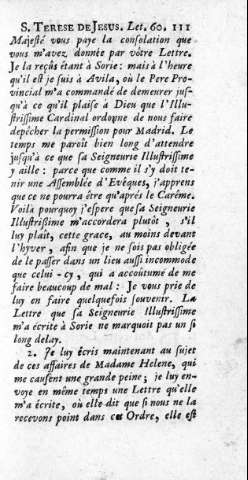 S. TERESE DE JESUS. Let. 60. 111
Majesté vous paye la consolation que
vous m'avez donnée par vôtre Lettre.
Je la reçûs étant à Sorie: mais à l'heure
qu'il est je suis à Avila, où le Pere Pro-
vincial m'a commandé de demeurer jus-
qu'à ce qu'il plaise à Dieu que l'Illu-
strissime Cardinal ordoȳne de nous faire
depêcher la permission pour Madrid. Le
temps me paroit bien long d'attendre
jusqu'à ce que sa Seigneurie Illustrissime
y aille: parce que comme il s'y doit te-
nir une Assemblée d'Evêques, j'apprens
que ce ne pourra être qu'après le Carême.
Voilà pourquoy j'espere que sa Seigneurie
Illustrissime m'accordera plutôt, s'il
luy plait, cette grace, au moins devant
l'hyver, afin que je ne sois pas obligée
de le passer dans un lieu aussi incommode
que celui-cy, qui a accoûtumé de me
faire beaucoup de mal: Je vous prie de
luy en faire quelquefois souvenir. La
Lettre que sa Seigneurie Illustrissime
m'a écrite à Sorie ne marquoit pas un si
long delay.
2. Je luy écris maintenant au sujet
de ces affaires de Madame Helene, qui
me causent une grande peine; je luy en-
voye en même temps une Lettre qu'elle
m'a écrite, où elle dit que si nous ne la
recevons point dans cet Ordre, elle est